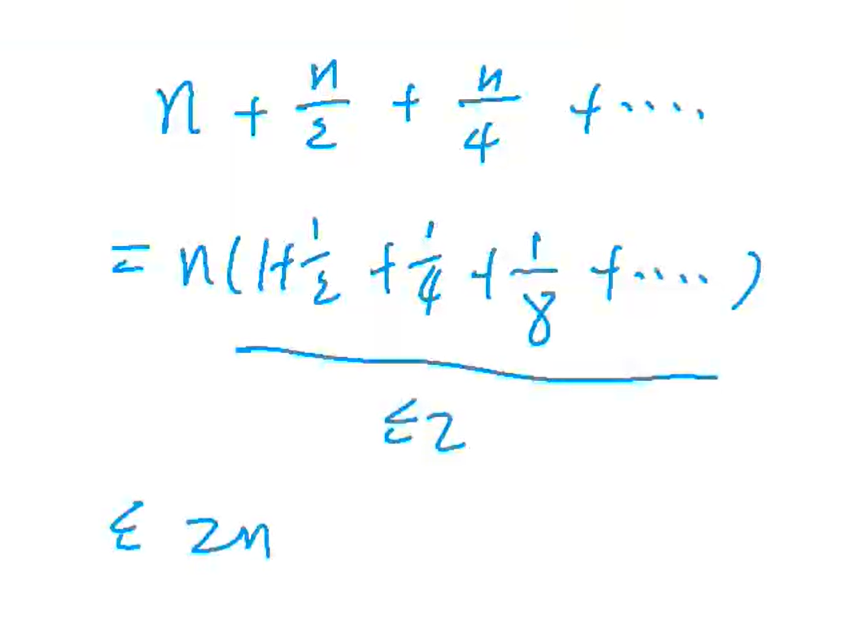 n + n/2 + n/4 + ....
= n(1+1/2 + 1/4 + 1/8 + ....)
≤2
≤ 2n